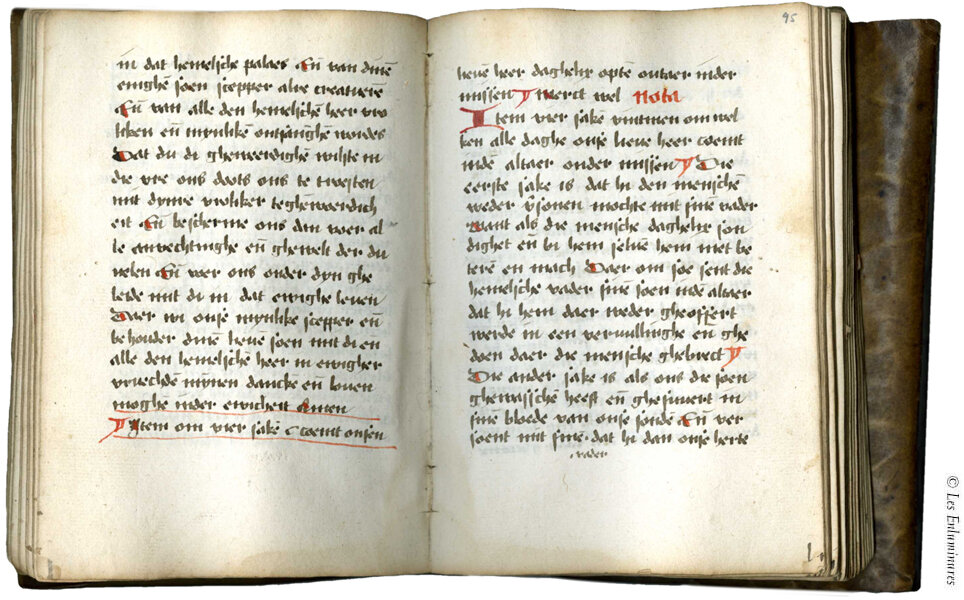 in dat hemelsche palaes En̄ van dinē
enighē soen scepper alre creatuere
En̄ van alle den hemelschē heer vro
liken en̄ mynlikē ontfanghē wordes
Dat du di gheweerdighē wilste in
die vre ons doots ons te troesten
mit dynre vroliker teghewoerdich
eit En̄ bescherme ons dan voer al
le anvechtinghe en̄ ghewelt der du
velen En̄ voer ons onder dyn ghe
leide mit di in dat ewighe leuen
Daer wi onse mynlike scepper en̄
behouder dinē lieuē soen mit di en
alle den hemelschē heer in ewigher
vruechdē mynen dancke en̄ louen
moghē īnder ewicheit Amen
Item om vier sakē coemt onsen
95
lieuē heer daghelix optē outaer inder
missen merct wel nota
Item vier sake vintmen om wel
ken alle daghe onse lieue heer coemt
indē altaer onder missen Die
eerste sake is dat hi den menschē
weder vsoenen mochte mit sinē vader
want als die mensche daghelix son
dighet en̄ bi hem seluē hem niet be
terē en mach Daer om soe sent die
hemelsche vader sinē soen indē altaer
dat hi hem daer weder gheoffert
werde in een vervullinghe en̄ ghe
doen daer die mensche ghebrect
Die ander sake is als ons die soen
ghewasschē heeft en̄ ghesuuert in
sinē bloede van onse sonde En̄ ver
soent mit sinē dat hi dan onse herte
vader
© Les Enluminures